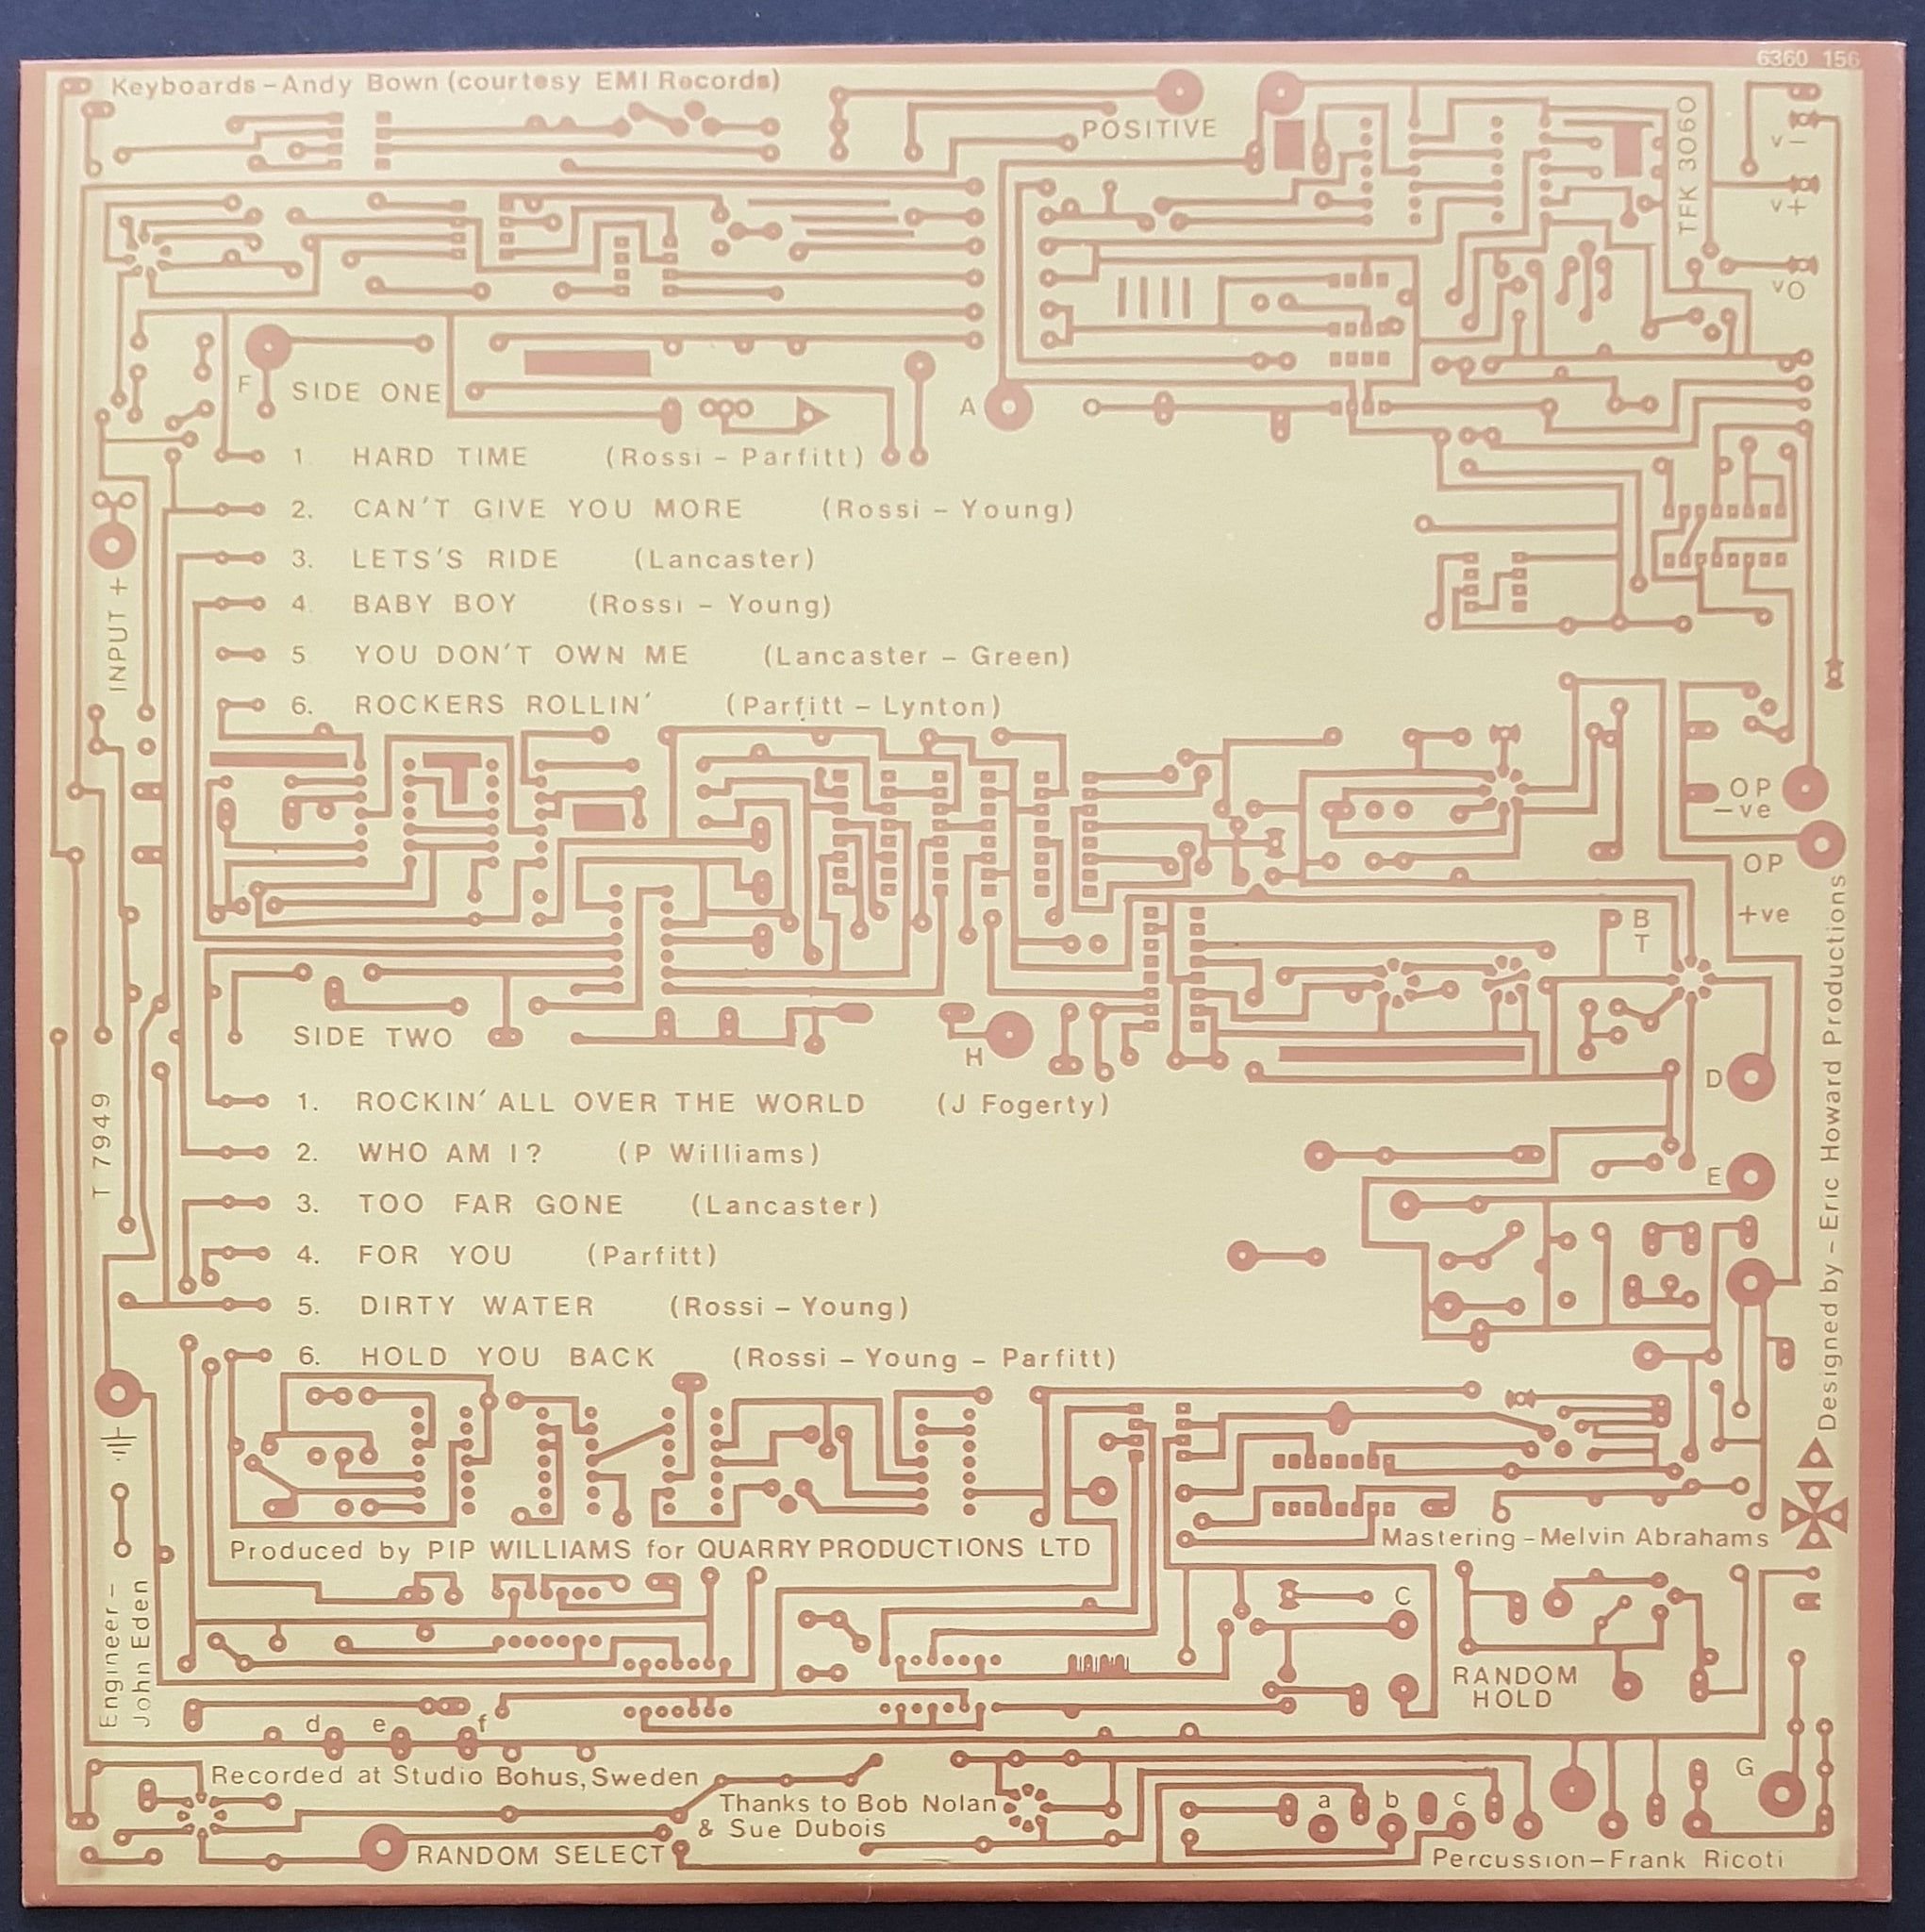 6360 156
Keyboards-Andy Bown (courtesy EMI Records)
POSITIVE
TFK 3060
V -
V +
V O
F
SIDE ONE
A
1 HARD TIME (Rossi - Parfitt)
2. CAN'T GIVE YOU MORE (Rossi - Young)
3. LETS'S RIDE (Lancaster)
4. BABY BOY (Rossi - Young)
5 YOU DON'T OWN ME (Lancaster - Green)
6. ROCKERS ROLLIN' (Parfitt - Lynton)
INPUT +
OP
-ve
OP
+ve
B
T
SIDE TWO
H
D
E
1. ROCKIN' ALL OVER THE WORLD (J Fogerty)
2. WHO AM I? (P Williams)
3. TOO FAR GONE (Lancaster)
4. FOR YOU (Parfitt)
5. DIRTY WATER (Rossi - Young)
6. HOLD YOU BACK (Rossi - Young - Parfitt)
T 7949
Designed by - Eric Howard Productions
Produced by PIP WILLIAMS for QUARRY PRODUCTIONS LTD
Mastering - Melvin Abrahams
Engineer -
John Eden
C
RANDOM
HOLD
d e f
G
Recorded at Studio Bohus, Sweden
Thanks to Bob Nolan
& Sue Dubois
a b c
RANDOM SELECT
Percussion - Frank Ricoti